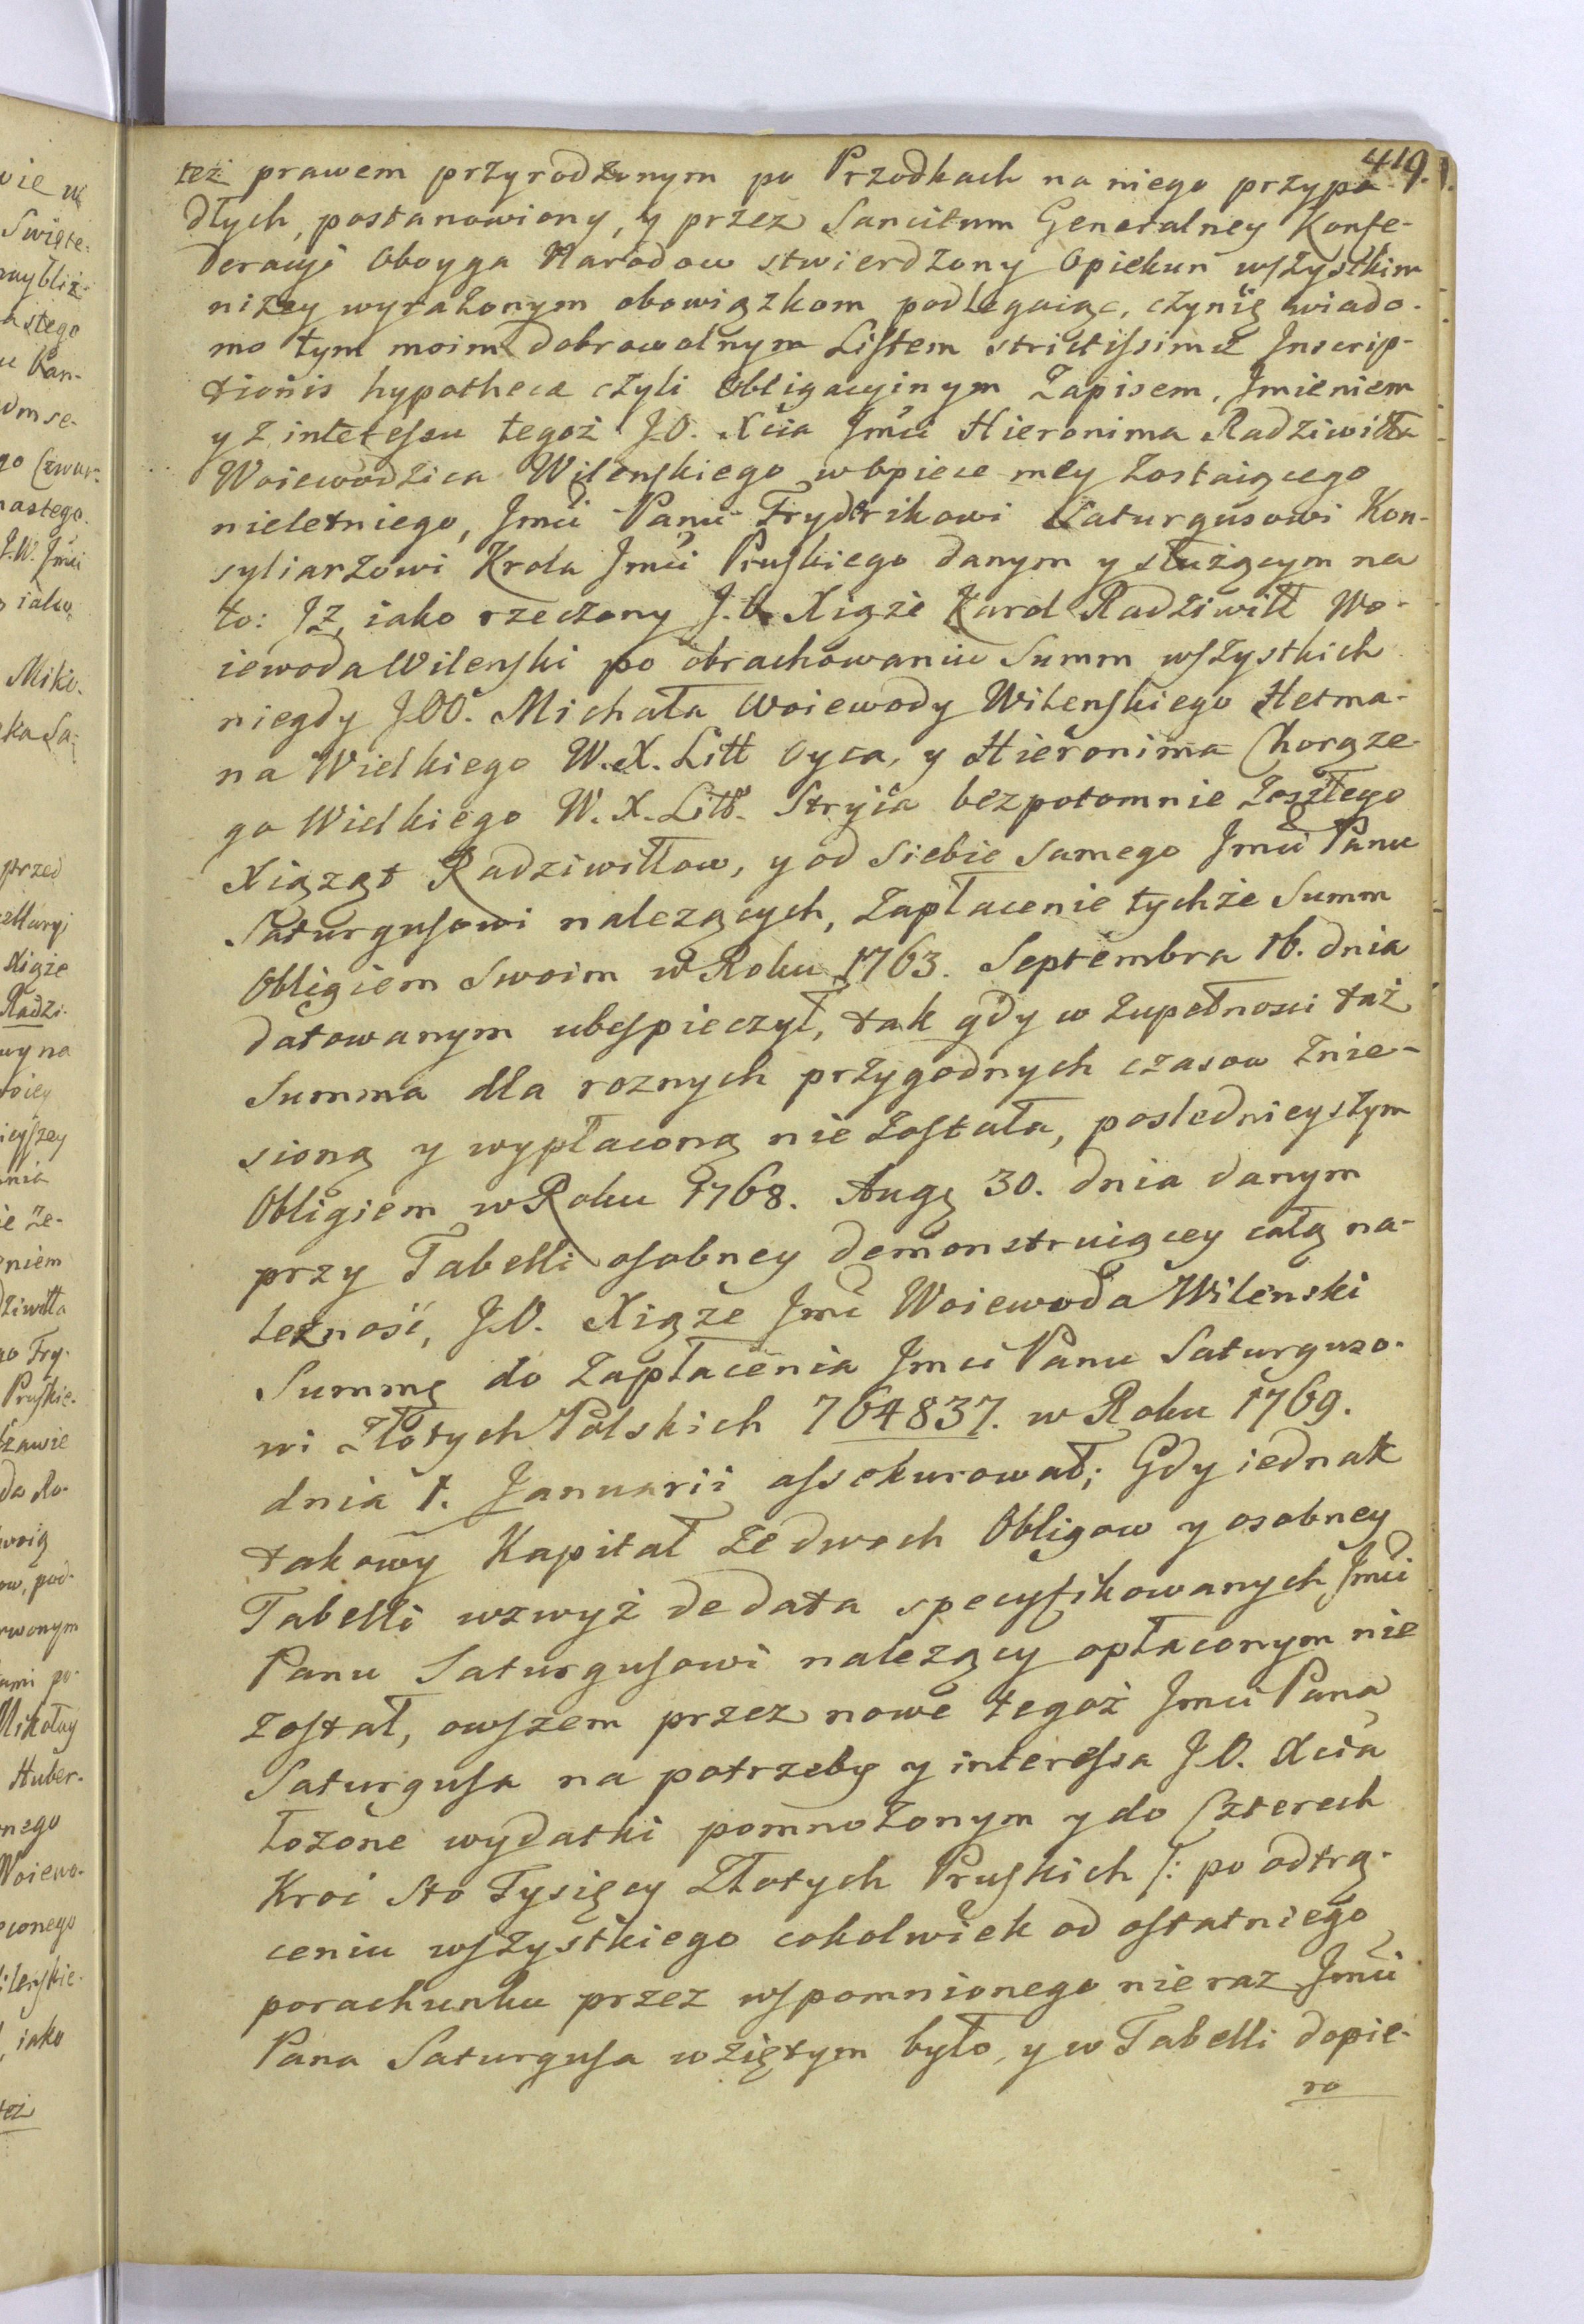 419.
też prawem przyrodzonym po Przodkach na niego przypa-
dłych, postanowiony, y przez Sancitum Generalney Konfe-
deracyi Oboyga Narodow stwierdzony Opiekun wszystkim
niżey wyrażonym obowiązkom podlegaiąc, czynię wiado-
mo tym moim dobrowolnym Listem strictissimæ Inscrip-
tionis hypotheca czyli Obligacyinym Zapisem, Imieniem
y z interessu tegoż J.O. Xcia Jmći Hieronima Radziwiłła
Woiewodzica Wilenskiego w opiece mey zostaiącego
nieletniego, Jmći Panu Fryderikowi Saturgusowi Kon-
syliarzowi Krola Jmći Pruskiego danym y służącym na
to: Iż, iako rzeczony J.O. Xiąże Karol Radziwiłł Wo-
iewoda Wilenski po obrachowaniu Summ wszystkich
niegdy J.OO. Michała Woiewody Wilenskiego Hetma-
na Wielkiego W.X. Litt Oyca, y Hieronima Chorąże-
go Wielkiego W.X. Litt. Stryia bezpotomnie zeszłego
Xiążąt Radziwiłłow, y od siebie samego Jmći Panu
Saturgusowi należących, zapłacenie tychże Summ
Obligiem swoim w Roku 1763. Septembra 16. dnia
datowanym ubespieczył, tak gdy w zupełnosci taż
Summa dla roznych przygodnych czasow znie-
sioną y wypłaconą nie została, poslednieyszym
Obligiem w Roku 1768. Augę 30. dnia danym
przy Tabelli osobney demonstruiącey całą na-
leżność, J.O. Xiąże Jmć Woiewoda Wilenski
Summę do zapłacenia Jmci Panu Saturguso-
wi Złotych Polskich 764837. w Roku 1769.
dnia 1. Januarii assekurował; Gdy iednak
takowy Kapitał ze dwoch Obligow y osobney
Tabelli wzwyż de data specyfikowanych Jmći
Panu Saturgusowi należący opłaconym nie
został, owszem przez nowe tegoż Jmci Pana
Saturgusa na potrzeby y interessa J.O. Xcia
łożone wydatki pomnożonym y do Czterech
Kroć Sto Tysięcy Złotych Pruskich /: po odtrą-
ceniu wszystkiego cokolwiek od ostatniego
porachunku przez wspomnionego nie raz Jmći
Pana Saturgusa wziętym było, y w Tabelli dopie-
ro